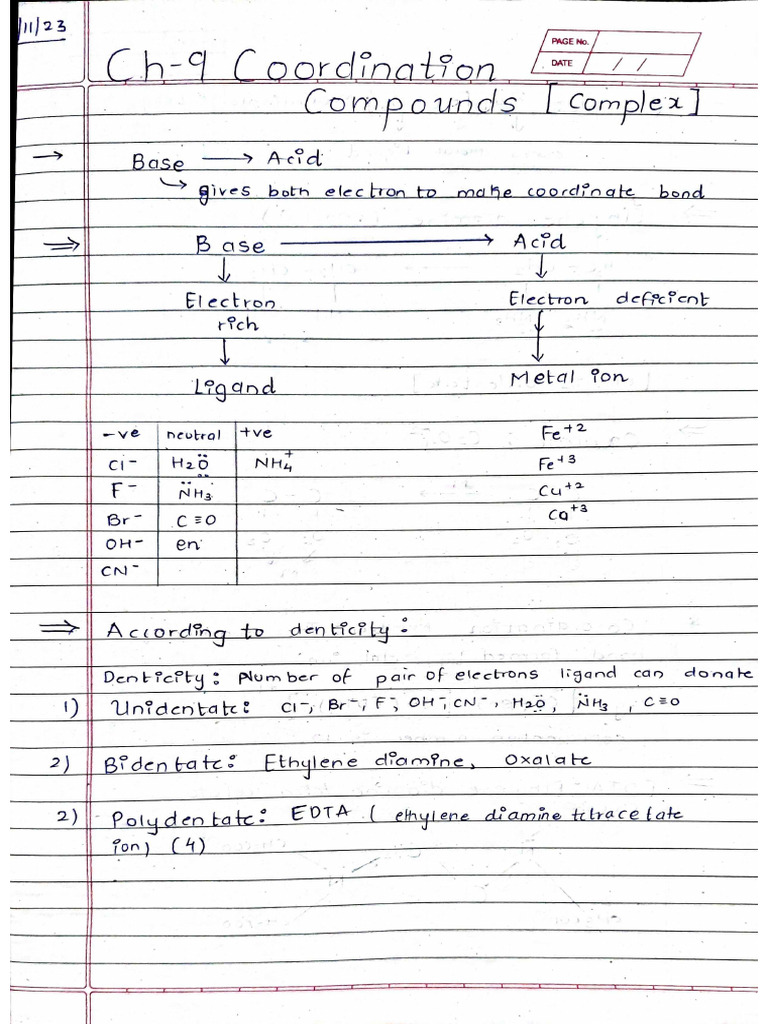 /11/23
PAGE No.
DATE / /
Ch-9 Coordination
Compounds [Complex]
→ Base → Acid
↳ gives both electron to make coordinate bond
⇒ Base → Acid
↓ ↓
Electron Electron deficient
rich
↓ ↓
Ligand Metal ion
-ve neutral +ve Fe+2
Cl- H2Ö NH4+ Fe+3
F- N̈H3 Cu+2
Br- C≡O Co+3
OH- en
CN-
⇒ According to denticity:
Denticity: Number of pair of electrons ligand can donate
1) Unidentate: Cl-, Br-, F-, OH-, CN-, H2Ö, N̈H3, C≡O
2) Bidentate: Ethylene diamine, Oxalate
2) Polydentate: EDTA (ethylene diamine tetracetate
ion) (4)